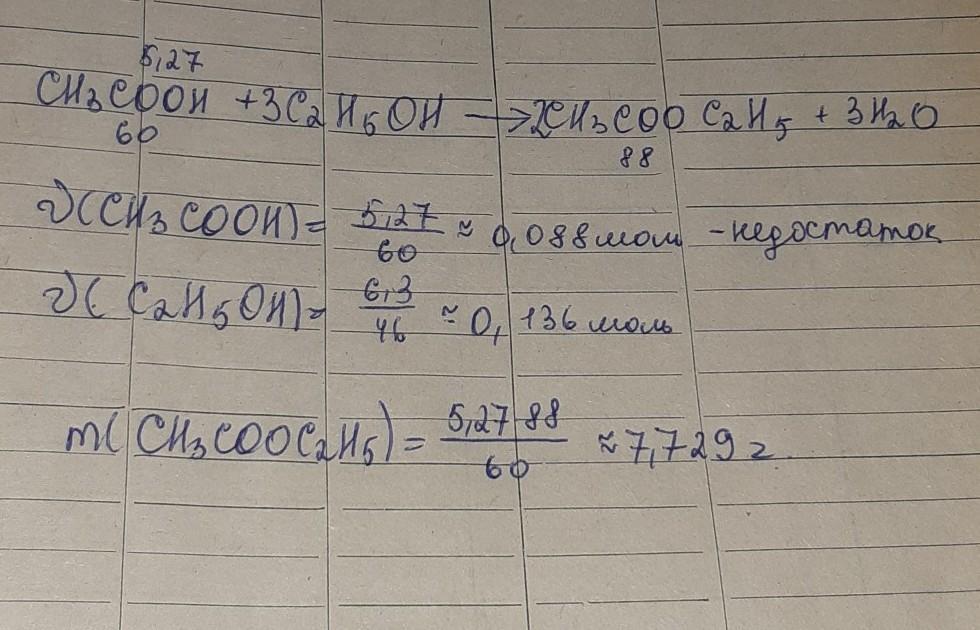 5,27
CH3COOH + 3C2H5OH → 2CH3COOC2H5 + 3H2O
60 88
ν(CH3COOH) = 5,27/60 ≈ 0,088 моль - недостаток
ν(C2H5OH) = 6,3/46 ≈ 0,136 моль
m(CH3COOC2H5) = 5,27 88/60 ≈ 7,729 г